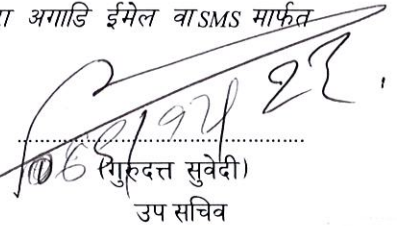 अगाडि ईमेल वा SMS मार्फत
(गुरुदत्त सुवेदी)
उप सचिव